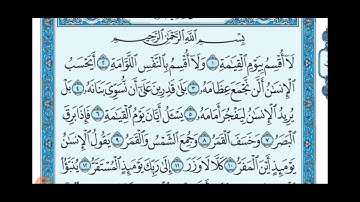 بِسْمِ اللَّهِ الرَّحْمَٰنِ الرَّحِيمِ
لَا أُقْسِمُ بِيَوْمِ الْقِيَامَةِ ١ وَلَا أُقْسِمُ بِالنَّفْسِ اللَّوَّامَةِ ٢ أَيَحْسَبُ
الْإِنسَانُ أَلَّن نَّجْمَعَ عِظَامَهُ ٣ بَلَىٰ قَادِرِينَ عَلَىٰ أَن نُّسَوِّيَ بَنَانَهُ ٤ بَلْ
يُرِيدُ الْإِنسَانُ لِيَفْجُرَ أَمَامَهُ ٥ يَسْأَلُ أَيَّانَ يَوْمُ الْقِيَامَةِ ٦ فَإِذَا بَرِقَ
الْبَصَرُ ٧ وَخَسَفَ الْقَمَرُ ٨ وَجُمِعَ الشَّمْسُ وَالْقَمَرُ ٩ يَقُولُ الْإِنسَانُ
يَوْمَئِذٍ أَيْنَ الْمَفَرُّ ١٠ كَلَّا لَا وَزَرَ ١١ إِلَىٰ رَبِّكَ يَوْمَئِذٍ الْمُسْتَقَرُّ ١٢ يُنَبَّؤُا